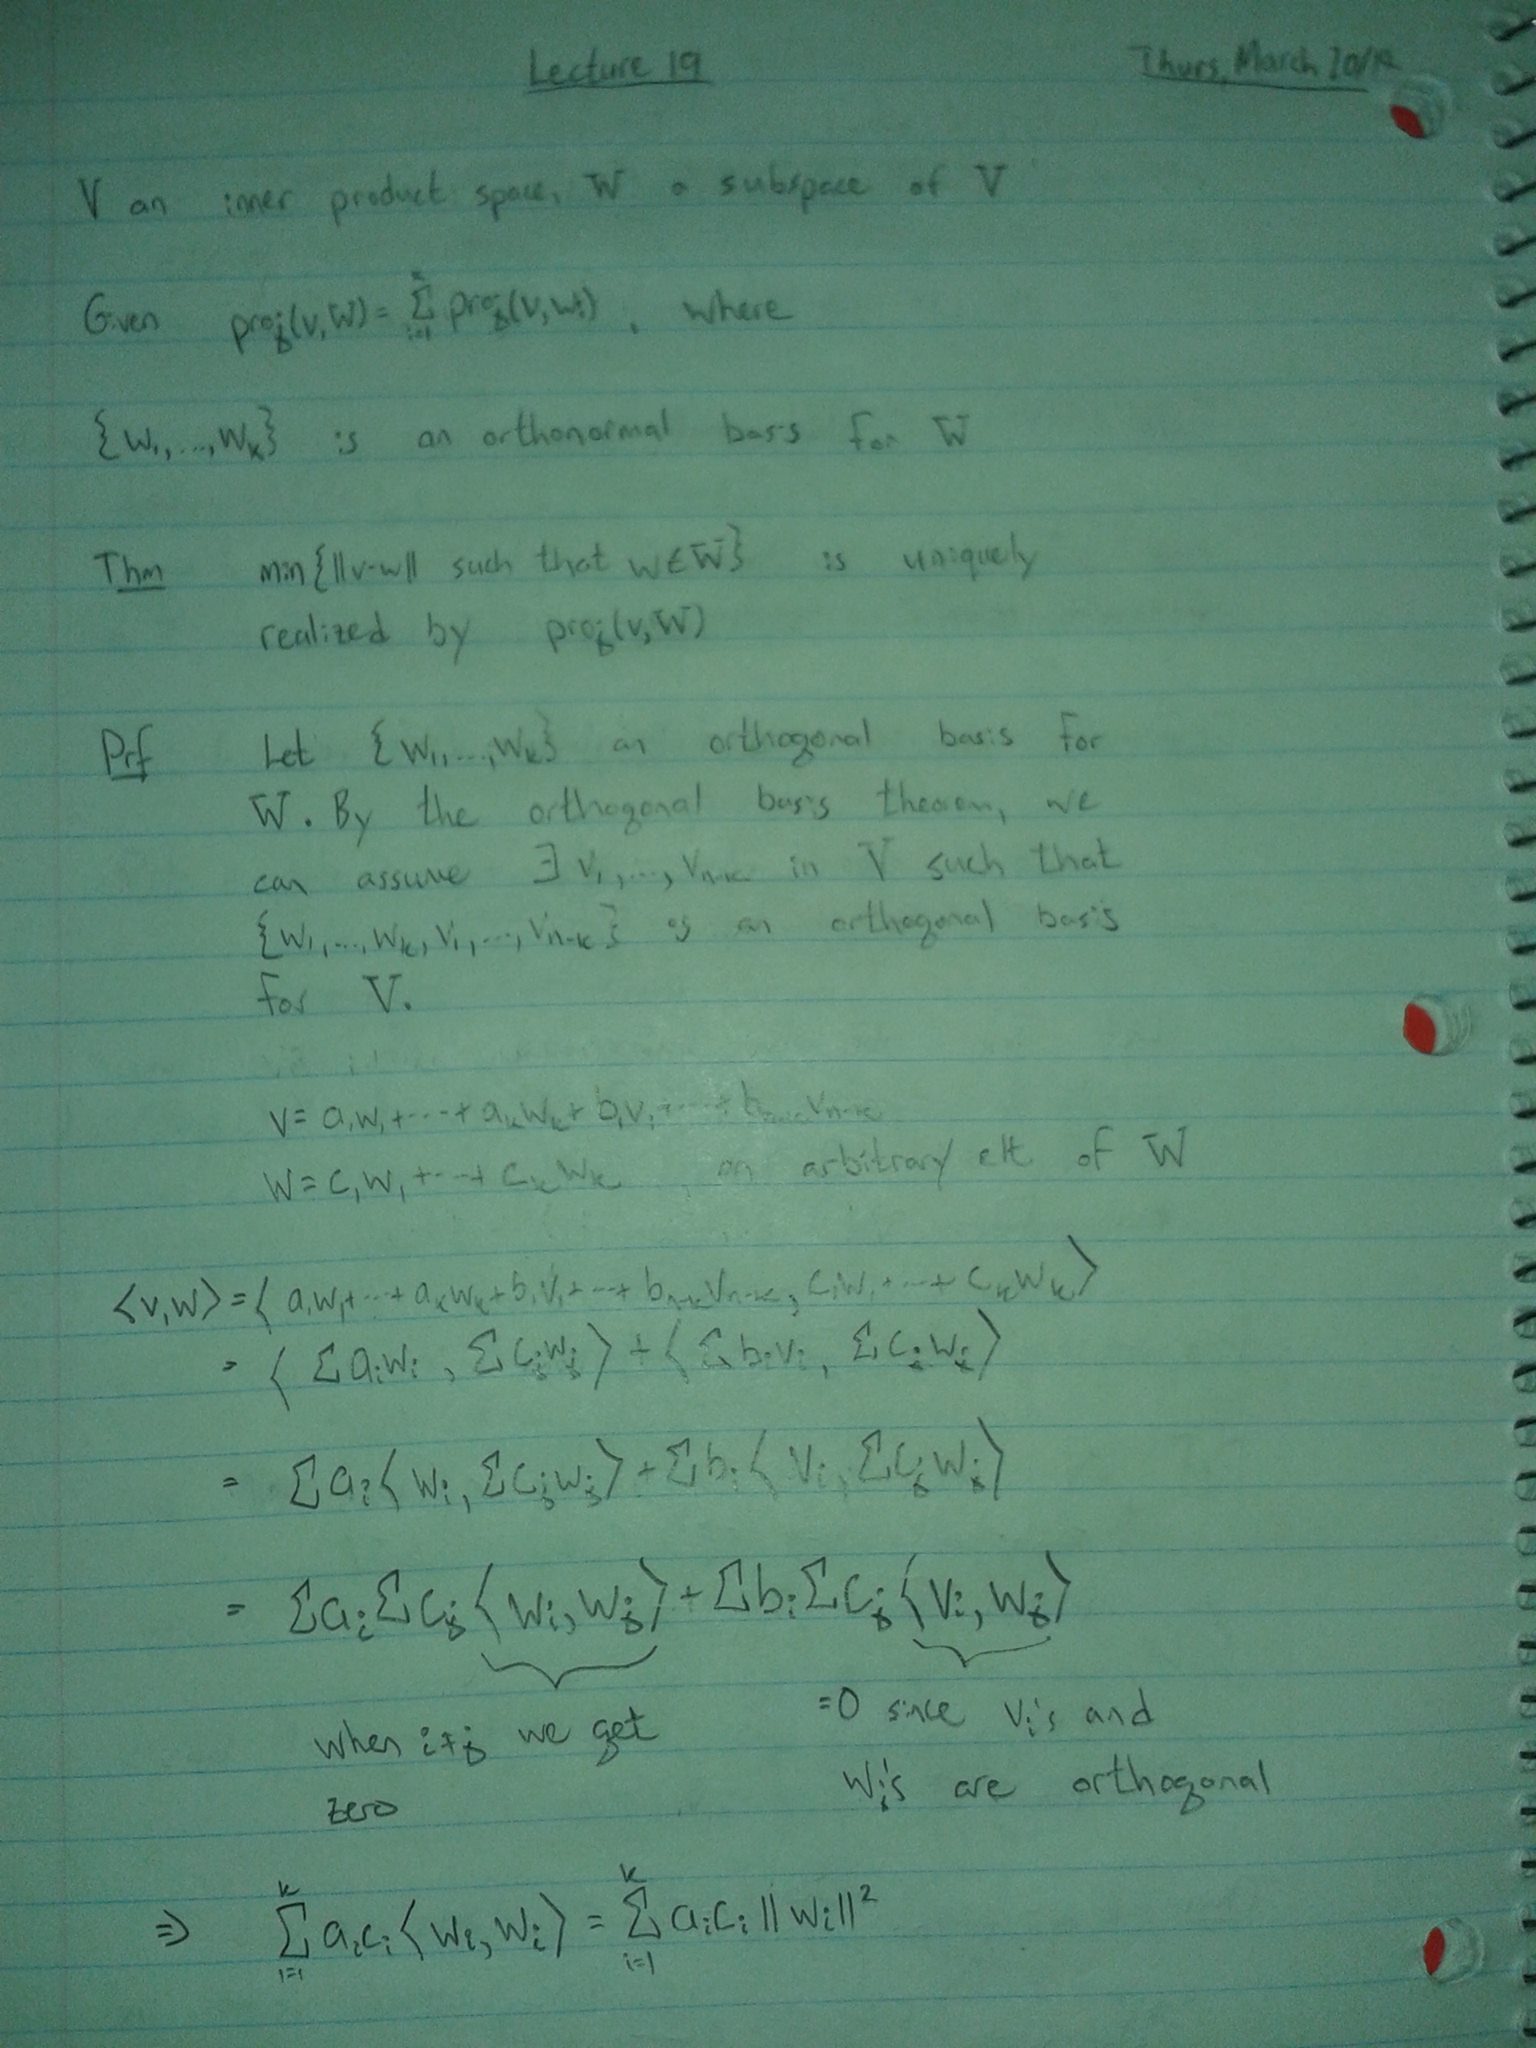 Lecture 19
Thurs, March 20/14
V an inner product space, W a subspace of V
Given proj(v,W) = Σ_{i=1}^{k} proj(v,wi), where
{w1,...,wk} is an orthonormal basis for W
Thm min{||v-w|| such that w∈W} is uniquely
realized by proj(v,W)
Prf Let {w1,...,wk} an orthogonal basis for
W. By the orthogonal basis theorem, we
can assume ∃ v1,...,vn-k in V such that
{w1,...,wk,v1,...,vn-k} is an orthogonal basis
for V.
v = a1w1+···+akwk+b1v1+···+bn-kvn-k
w = c1w1+···+ckwk an arbitrary elt of W
⟨v,w⟩ = ⟨a1w1+···+akwk+b1v1+···+bn-kvn-k, c1w1+···+ckwk⟩
= ⟨Σaiwi, Σcjwj⟩ + ⟨Σbivi, Σcjwj⟩
= Σai⟨wi, Σcjwj⟩ + Σbi⟨vi, Σcjwj⟩
= ΣaiΣcj⟨wi,wj⟩ + ΣbiΣcj⟨vi,wj⟩
when i≠j we get
zero
=0 since vi's and
wj's are orthogonal
⇒ Σ_{i=1}^{k} aici⟨wi,wi⟩ = Σ_{i=1}^{k} aici||wi||²